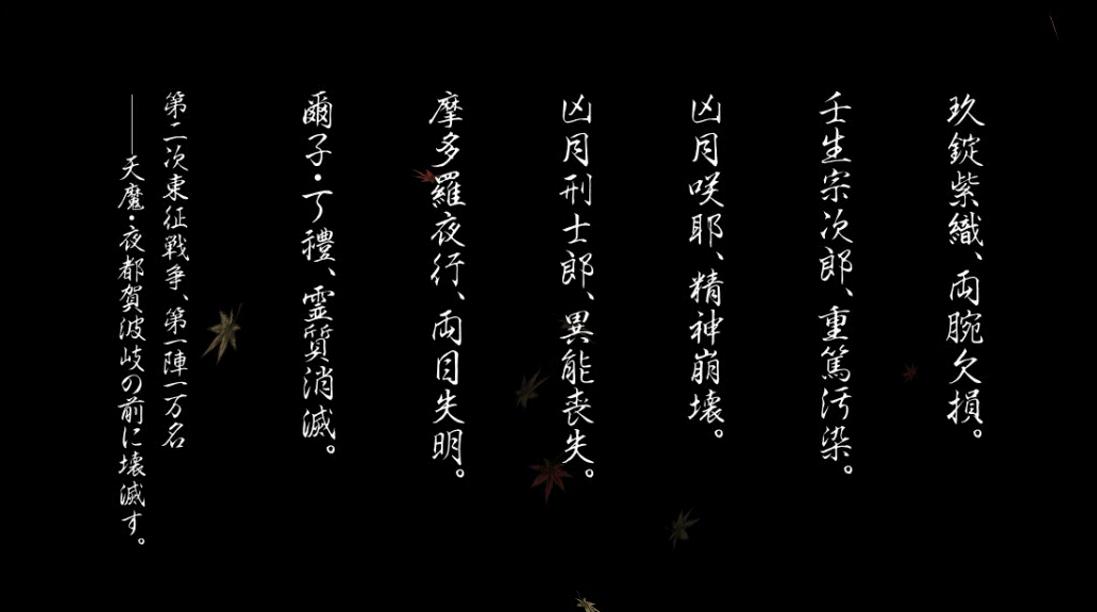 玖錠紫織、両腕欠損。
壬生宗次郎、重篤汚染。
凶月咲耶、精神崩壊。
凶月刑士郎、異能喪失。
摩多羅夜行、両目失明。
爾子・丁禮、霊質消滅。
第二次東征戦争、第一陣一万名
――天魔・夜都賀波岐の前に壊滅す。